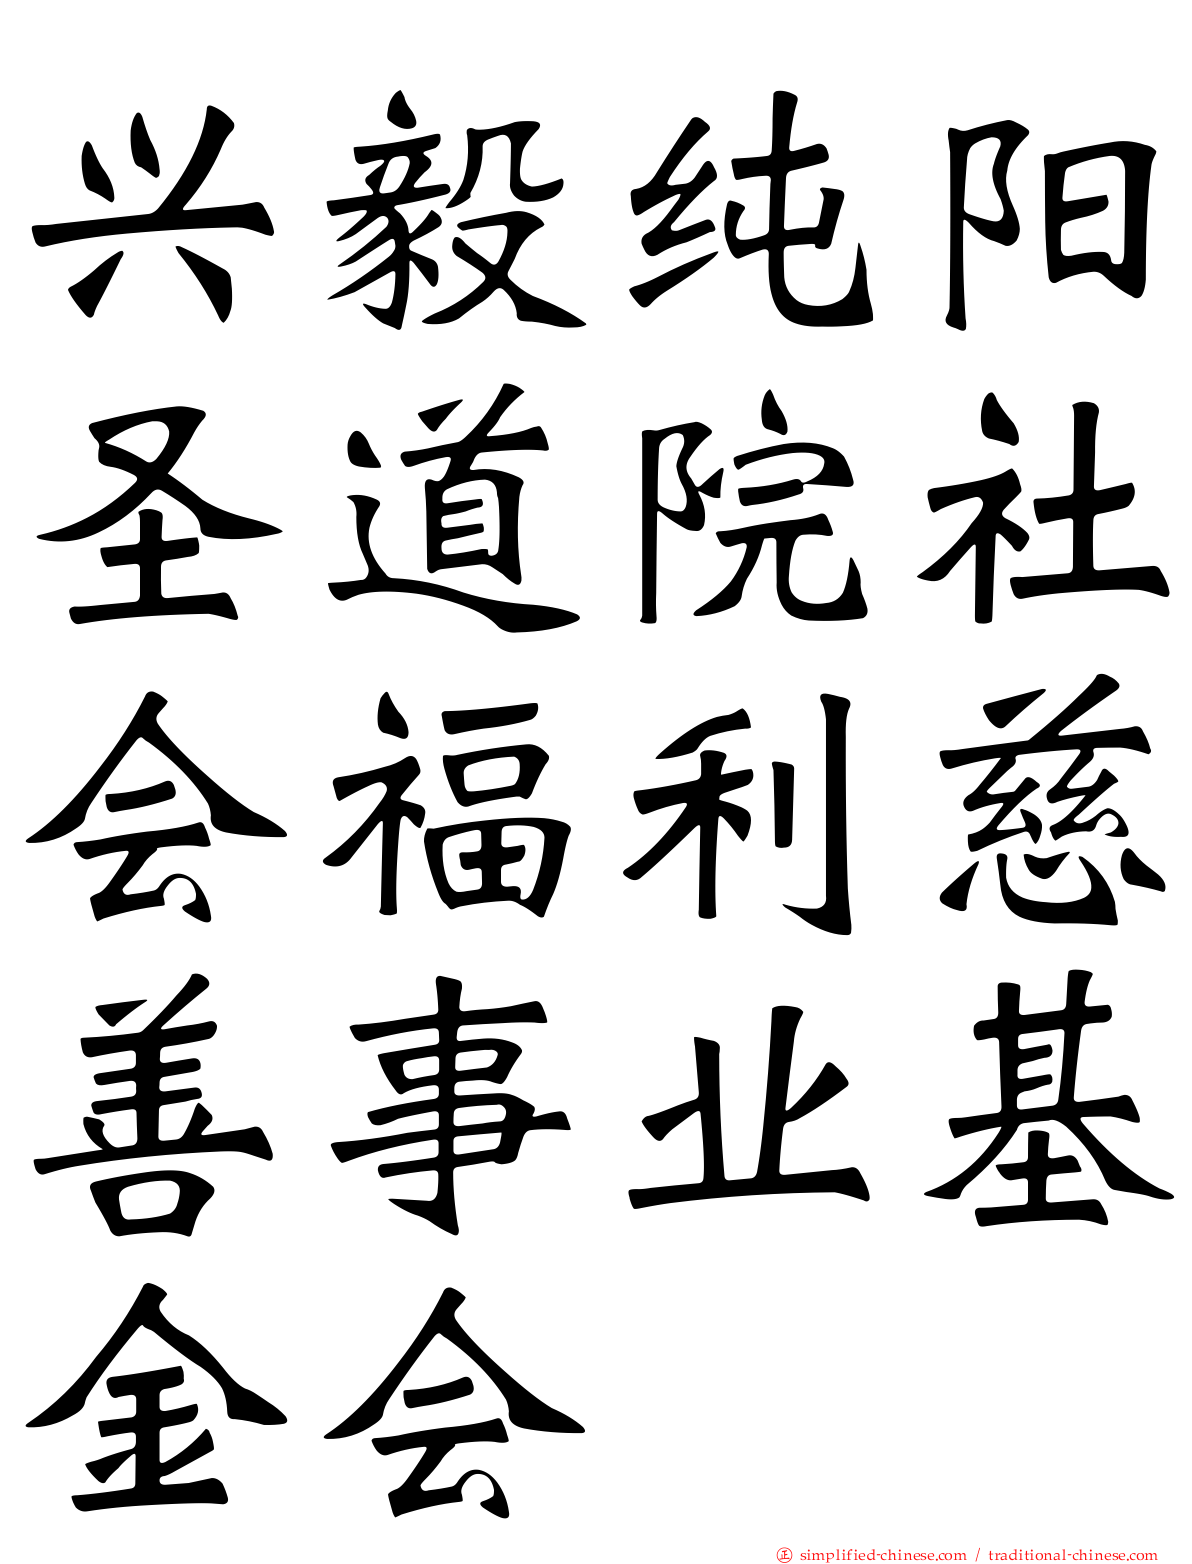 兴毅纯阳
圣道院社
会福利慈
善事业基
金会
正 simplified-chinese.com / traditional-chinese.com